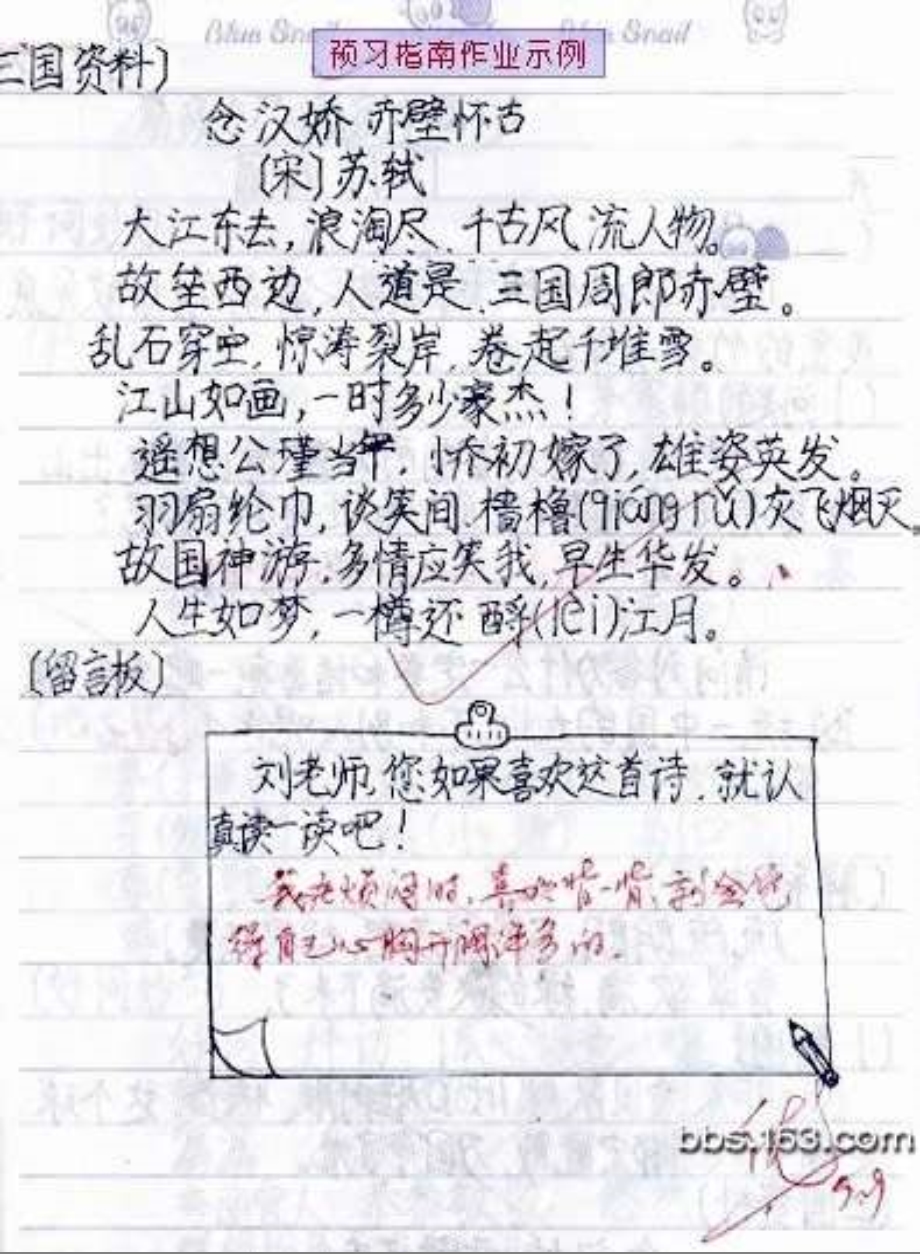 Blue Snail
预习指南作业示例
三国资料〕
念汉娇 赤壁怀古
〔宋〕苏轼
大江东去,浪淘尽,千古风流人物。
故垒西边,人道是,三国周郎赤壁。
乱石穿空,惊涛裂岸,卷起千堆雪。
江山如画,一时多少豪杰!
遥想公瑾当年,小乔初嫁了,雄姿英发。
羽扇纶巾,谈笑间,樯橹(qiáng rǔ)灰飞烟灭。
故国神游,多情应笑我,早生华发。
人生如梦,一樽还酹(lèi)江月。
〔留言板〕
刘老师,您如果喜欢这首诗,就认
真读一读吧!
我在烦闷时,真的背一背,就会觉
得自己心胸开阔许多的.
bbs.163.com
9.9